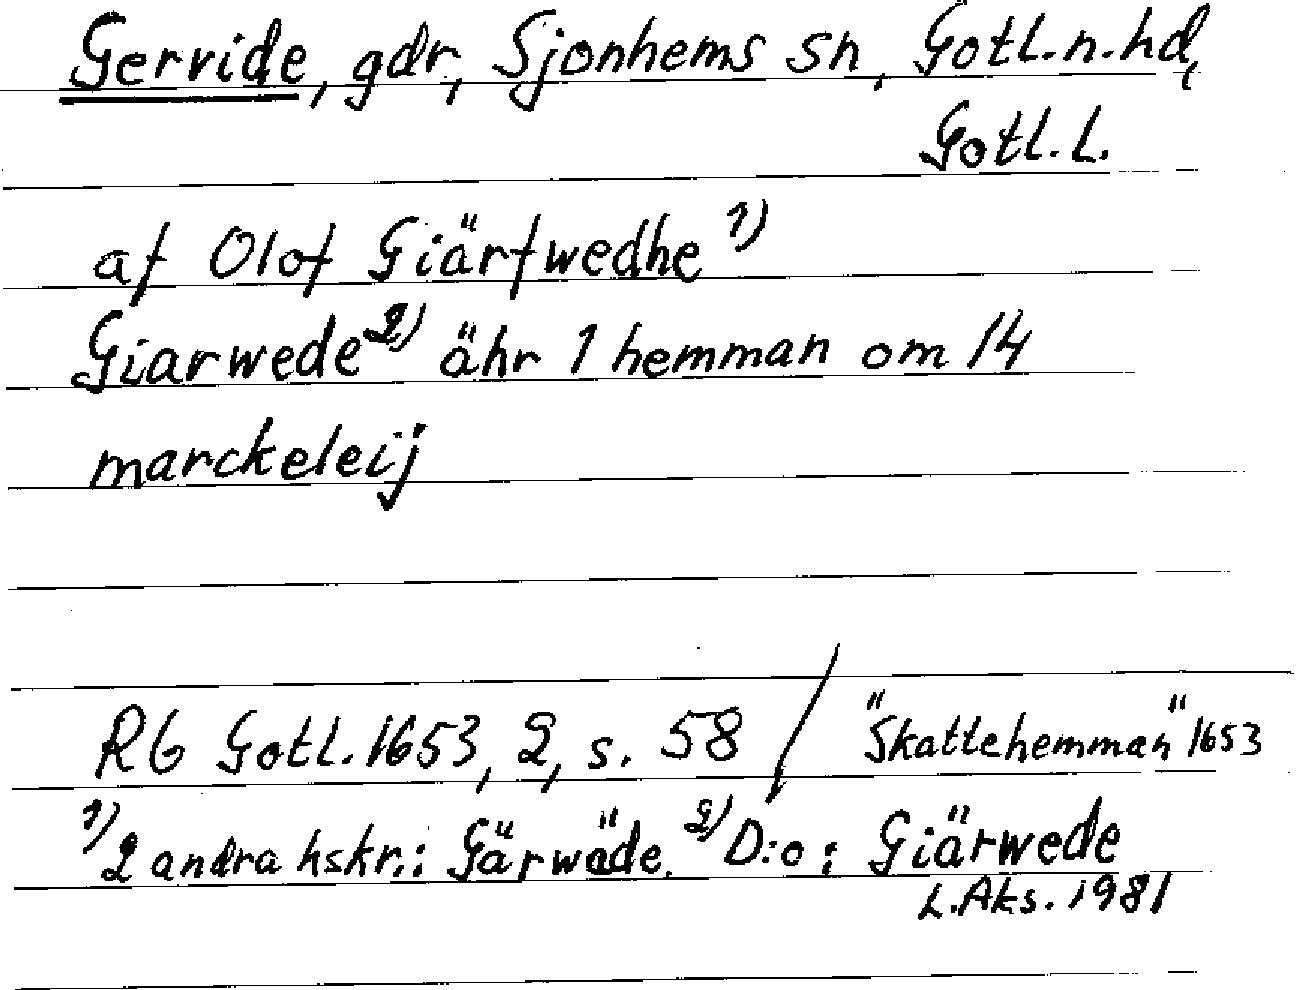 Gervide, gdr, Sjonhems sn, Gotl. n. hd,
Gotl. L.
af Olof Giärfwedhe 1)
Giarwede 2) ähr 1 hemman om 14
marckeleij
RG Gotl. 1653, 2, s. 58 / "Skattehemman" 1653
1) 2 andra hskr.: Gärwäde. 2) D:o: Giärwede
L. Aks. 1981